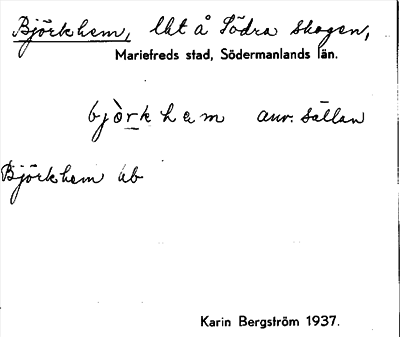 Björkhem, lht å Södra skogen,
Mariefreds stad, Södermanlands län.
bjòrkhem anv. sällan
Björkhem ub
Karin Bergström 1937.